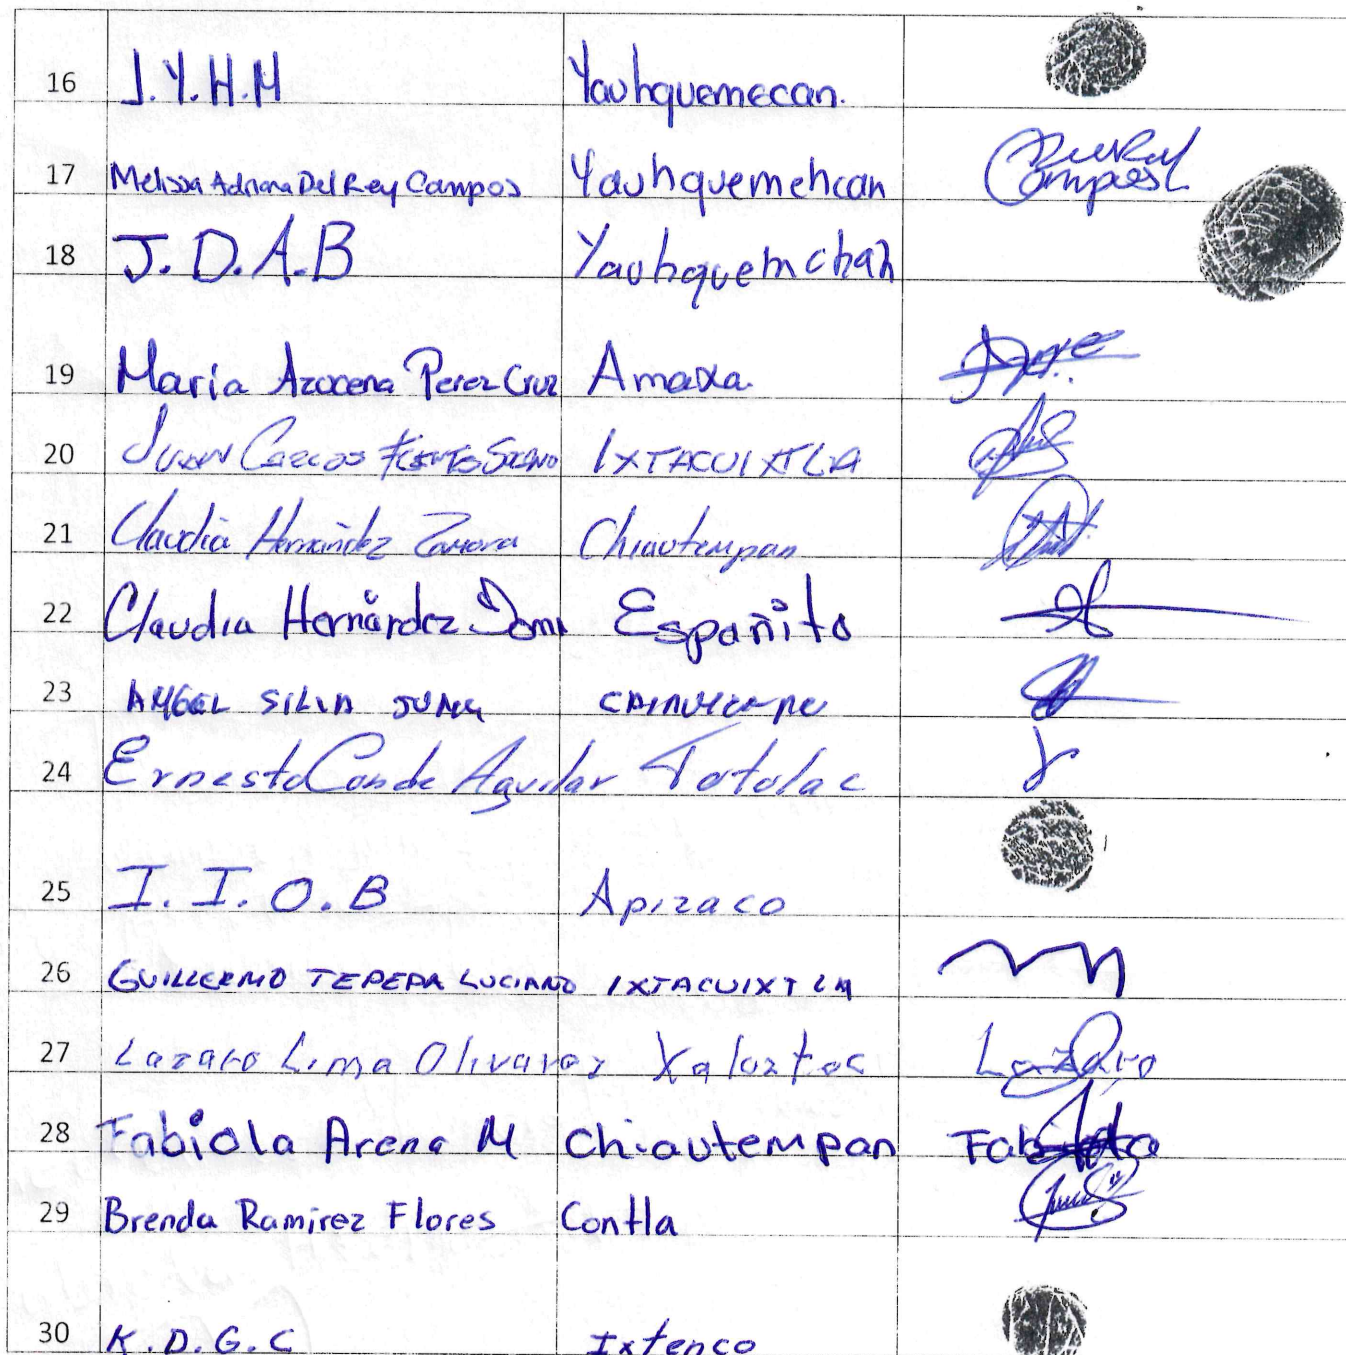 16 J.Y.H.M Yauhquemecan.
17 Melissa Adriana Del Rey Campos Yauhquemehcan
18 J.D.A.B Yauhquemchan
19 Maria Azucena Perez Cruz Amaxa.
20 Juan Carlos IXTACUIXTLA
21 Claudia Hernández Zamora Chiautempan
22 Claudia Hernández Españita
23 ANGEL SILVA
24 Ernesto Conde Aguilar Totolac
25 I.I.O.B Apizaco
26 GUILLERMO TEPEPA LUCIANO IXTACUIXTLA
27 Lazaro Lima Olivares Xaloztoc Lazaro
28 Fabiola Arena M Chiautempan Fabiola
29 Brenda Ramirez Flores Contla
30 K.D.G.C Ixtenco